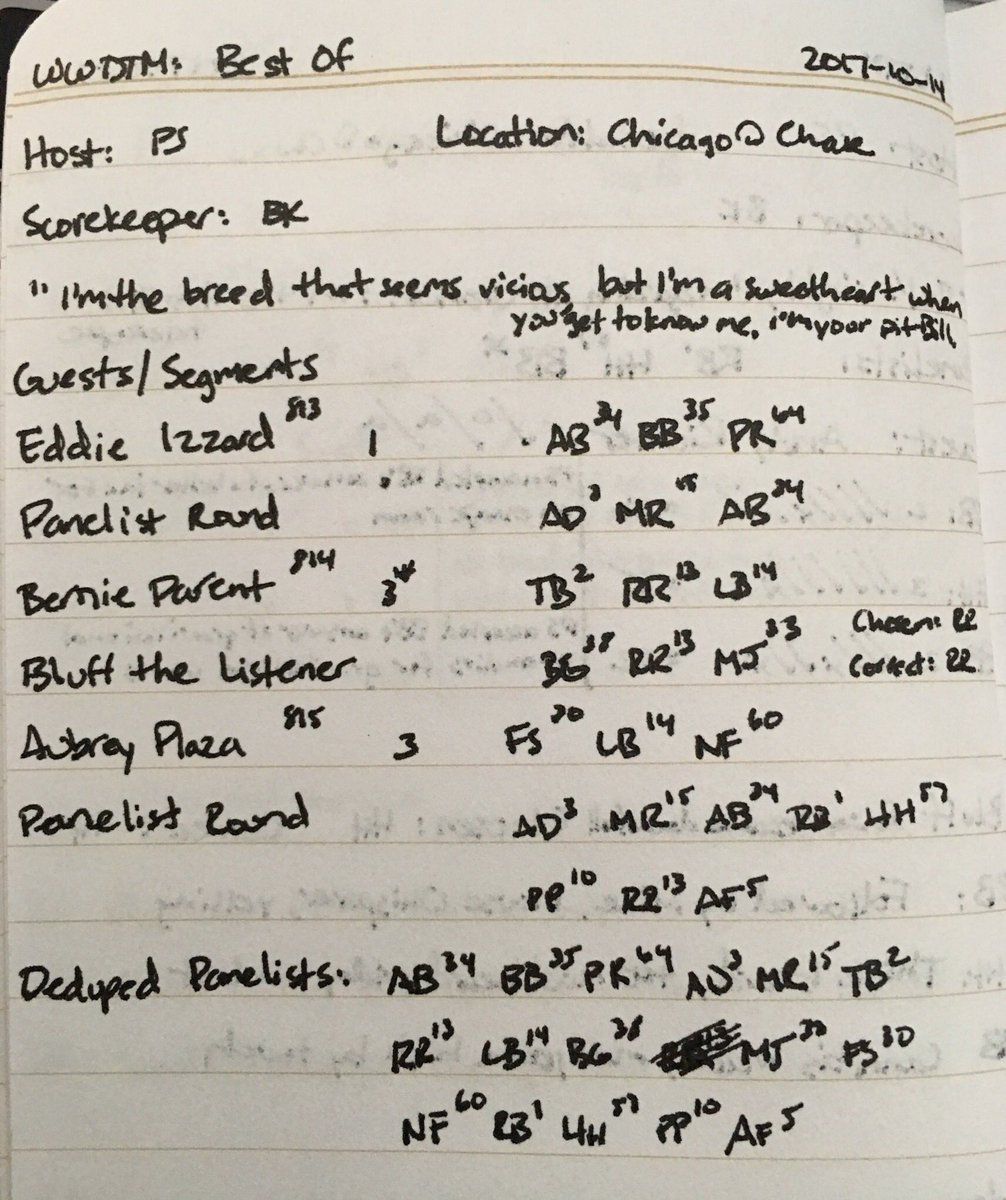 WWDTM: Best Of 2017-10-14
Host: PS Location: Chicago @ Chase
Scorekeeper: BK
"I'm the breed that seems vicious but I'm a sweetheart when
you get to know me, i'm your pit Bill
Guests/Segments
Eddie Izzard 813 1 AB 34 BB 35 PR 64
Panelist Round AD 3 MR 15 AB 34
Bernie Parent 814 3* TB 2 RR 13 LB 14
Bluff the Listener BG 38 RR 13 MJ 33 Chosen: RR
Correct: RR
Aubrey Plaza 815 3 FS 30 LB 14 NF 60
Panelist Round AD 3 MR 15 AB 34 RB 1 HH 57
PP 10 RR 13 AF 5
Deduped Panelists: AB 34 BB 35 PR 64 AD 3 MR 15 TB 2
RR 13 LB 14 BG 38 MJ 33 FS 30
NF 60 RB 1 HH 57 PP 10 AF 5